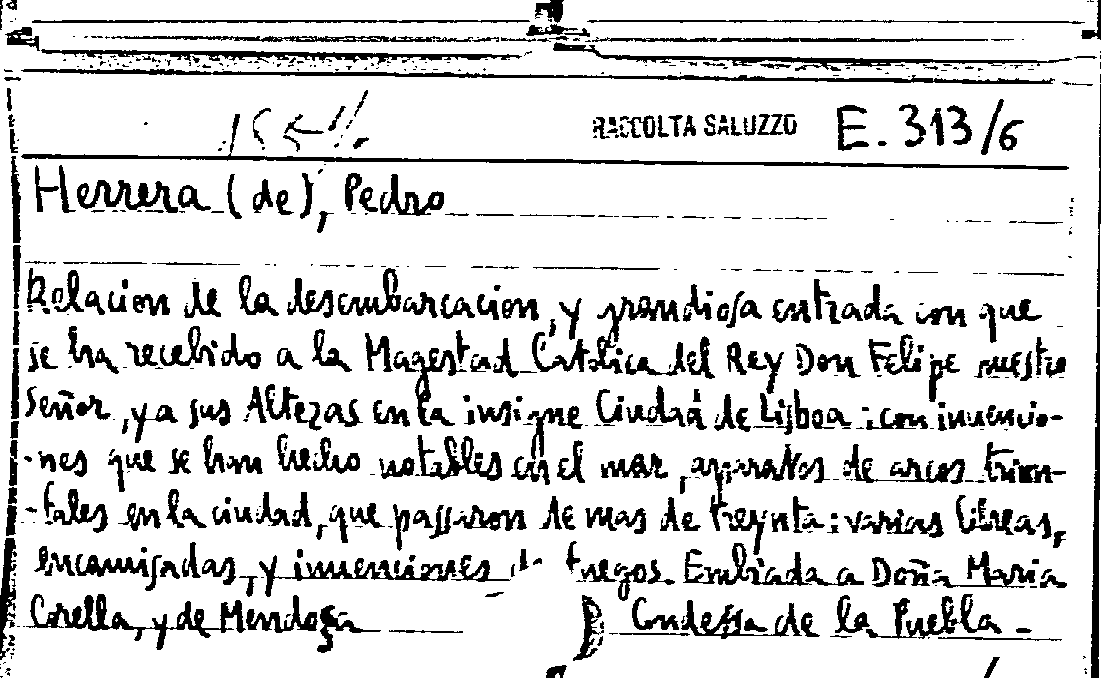 RACCOLTA SALUZZO E. 313/6
Herrera (de), Pedro
Relacion de la desembarcacion, y grandiosa entrada con que
se ha recebido a la Magestad Catolica del Rey Don Felipe nuestro
Señor, y a sus Altezas en la insigne Ciudad de Lisboa: con inuencio-
-nes que se han hecho notables en el mar, aparatos de arcos triun-
-fales en la ciudad, que passaron de mas de treynta: varias libreas,
encamisadas, y inuenciones de fuegos. Embiada a Doña Maria
Corella, y de Mendoça Condessa de la Puebla -